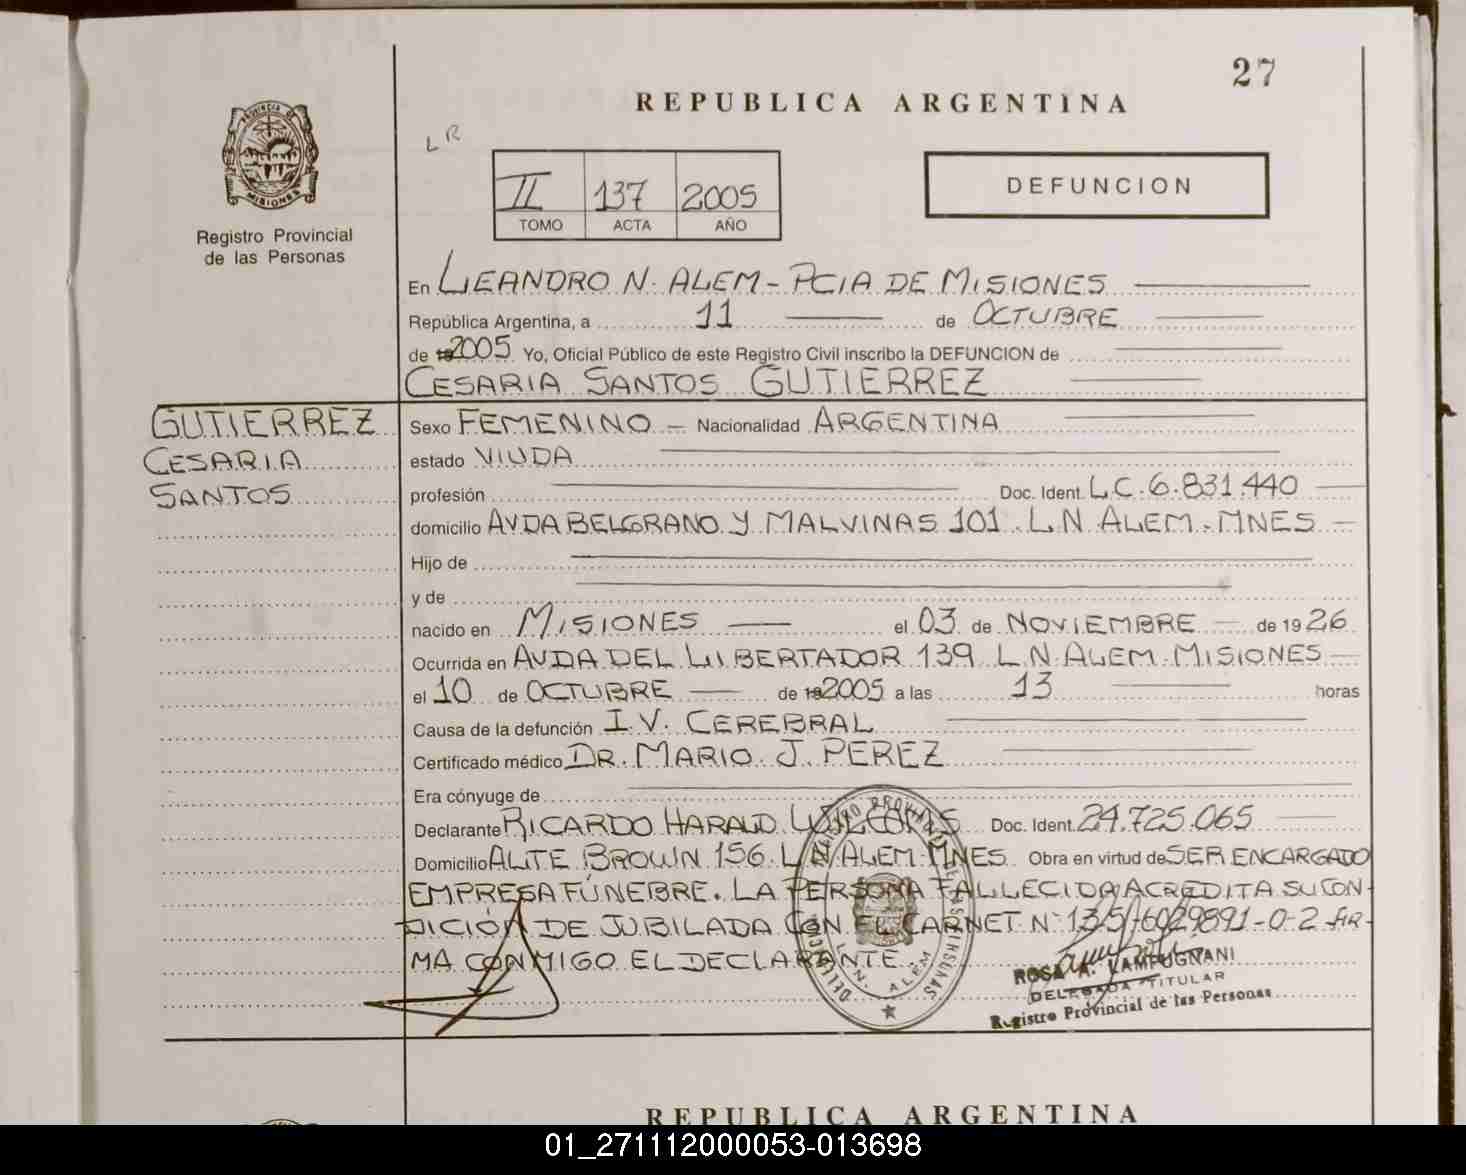 27
REPUBLICA ARGENTINA
PROVINCIA DE
MISIONES
Registro Provincial
de las Personas
LR
II 137 2005
TOMO ACTA AÑO
DEFUNCION
En LEANDRO N. ALEM - PCIA DE MISIONES
República Argentina, a 11 de OCTUBRE
de 2005 Yo, Oficial Público de este Registro Civil inscribo la DEFUNCION de
CESARIA SANTOS GUTIERREZ
GUTIERREZ
CESARIA
SANTOS
Sexo FEMENINO - Nacionalidad ARGENTINA
estado VIUDA
profesión Doc. Ident. L.C. 6.831.440
domicilio AVDA BELGRANO Y MALVINAS 101. L.N. ALEM. MNES -
Hijo de
y de
nacido en MISIONES el 03 de NOVIEMBRE de 1926
Ocurrida en AVDA DEL LIBERTADOR 139 L.N. ALEM. MISIONES
el 10 de OCTUBRE de 2005 a las 13 horas
Causa de la defunción I.V. CEREBRAL
Certificado médico DR. MARIO J. PEREZ
Era cónyuge de
Declarante RICARDO HARALD Doc. Ident. 24.725.065
Domicilio ALTE BROWN 156. L.N. ALEM. MNES Obra en virtud de SER ENCARGADO
EMPRESA FÚNEBRE. LA PERSONA FALLECIDA ACREDITA SU CON-
DICIÓN DE JUBILADA CON EL CARNET Nº 135/6029891-0-2 FIR-
MA CONMIGO EL DECLARANTE.
L.N. ALEM
ROSA A. LAMPUGNANI
DELEGADA TITULAR
Registro Provincial de las Personas
REPUBLICA ARGENTINA
01_271112000053-013698